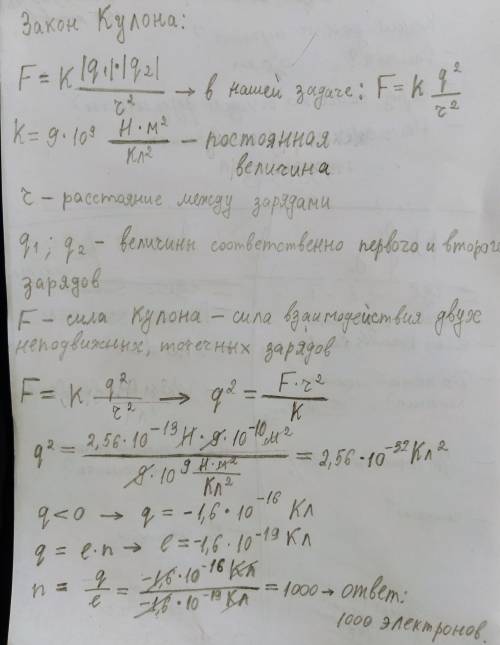 Закон Кулона:
F = K |q₁|·|q₂| / r² → в нашей задаче: F = K q² / r²
K = 9·10⁹ Н·м² / Кл² – постоянная
величина
r – расстояние между зарядами
q₁; q₂ – величины соответственно первого и второго
зарядов
F – сила Кулона – сила взаимодействия двух
неподвижных, точечных зарядов
F = K q² / r² → q² = F·r² / K
q² = 2,56·10⁻¹³ Н·9·10⁻¹⁰ м² / 9·10⁹ Н·м² / Кл² = 2,56·10⁻³² Кл²
q < 0 → q = -1,6·10⁻¹⁶ Кл
q = e·n → e = -1,6·10⁻¹⁹ Кл
n = q / e = -1,6·10⁻¹⁶ Кл / -1,6·10⁻¹⁹ Кл = 1000 → ответ:
1000 электронов.